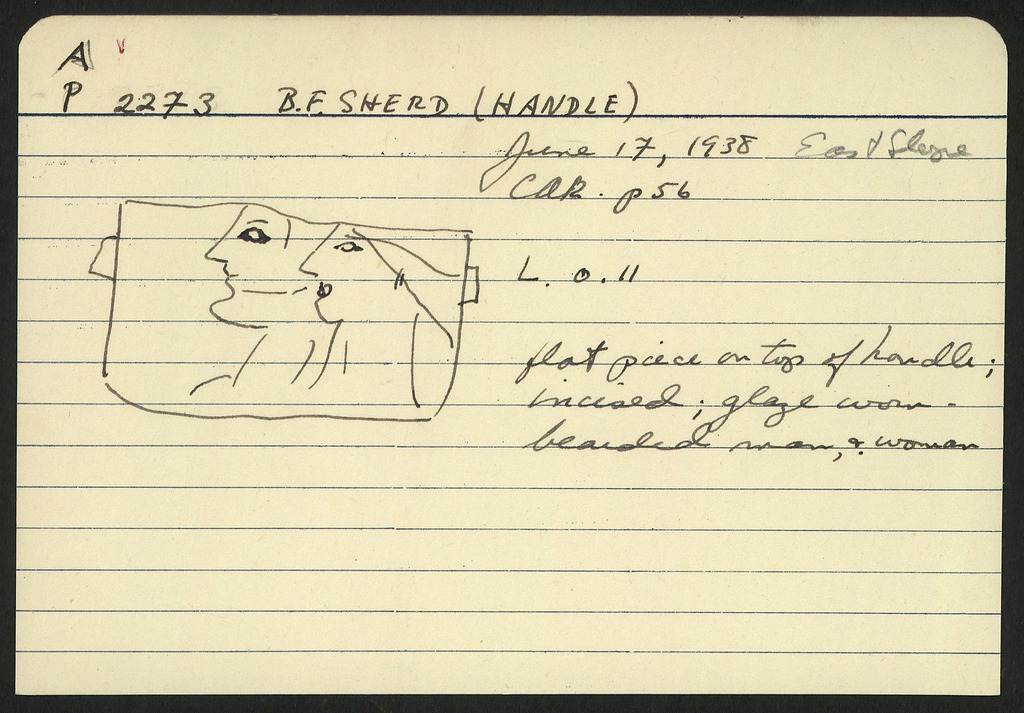 A v
P 2273 B.F. SHERD (HANDLE)
June 17, 1938 East Slope
CAR. p 56
L. 0.11
flat piece on top of handle;
incised; glaze worn-
bearded man, & woman